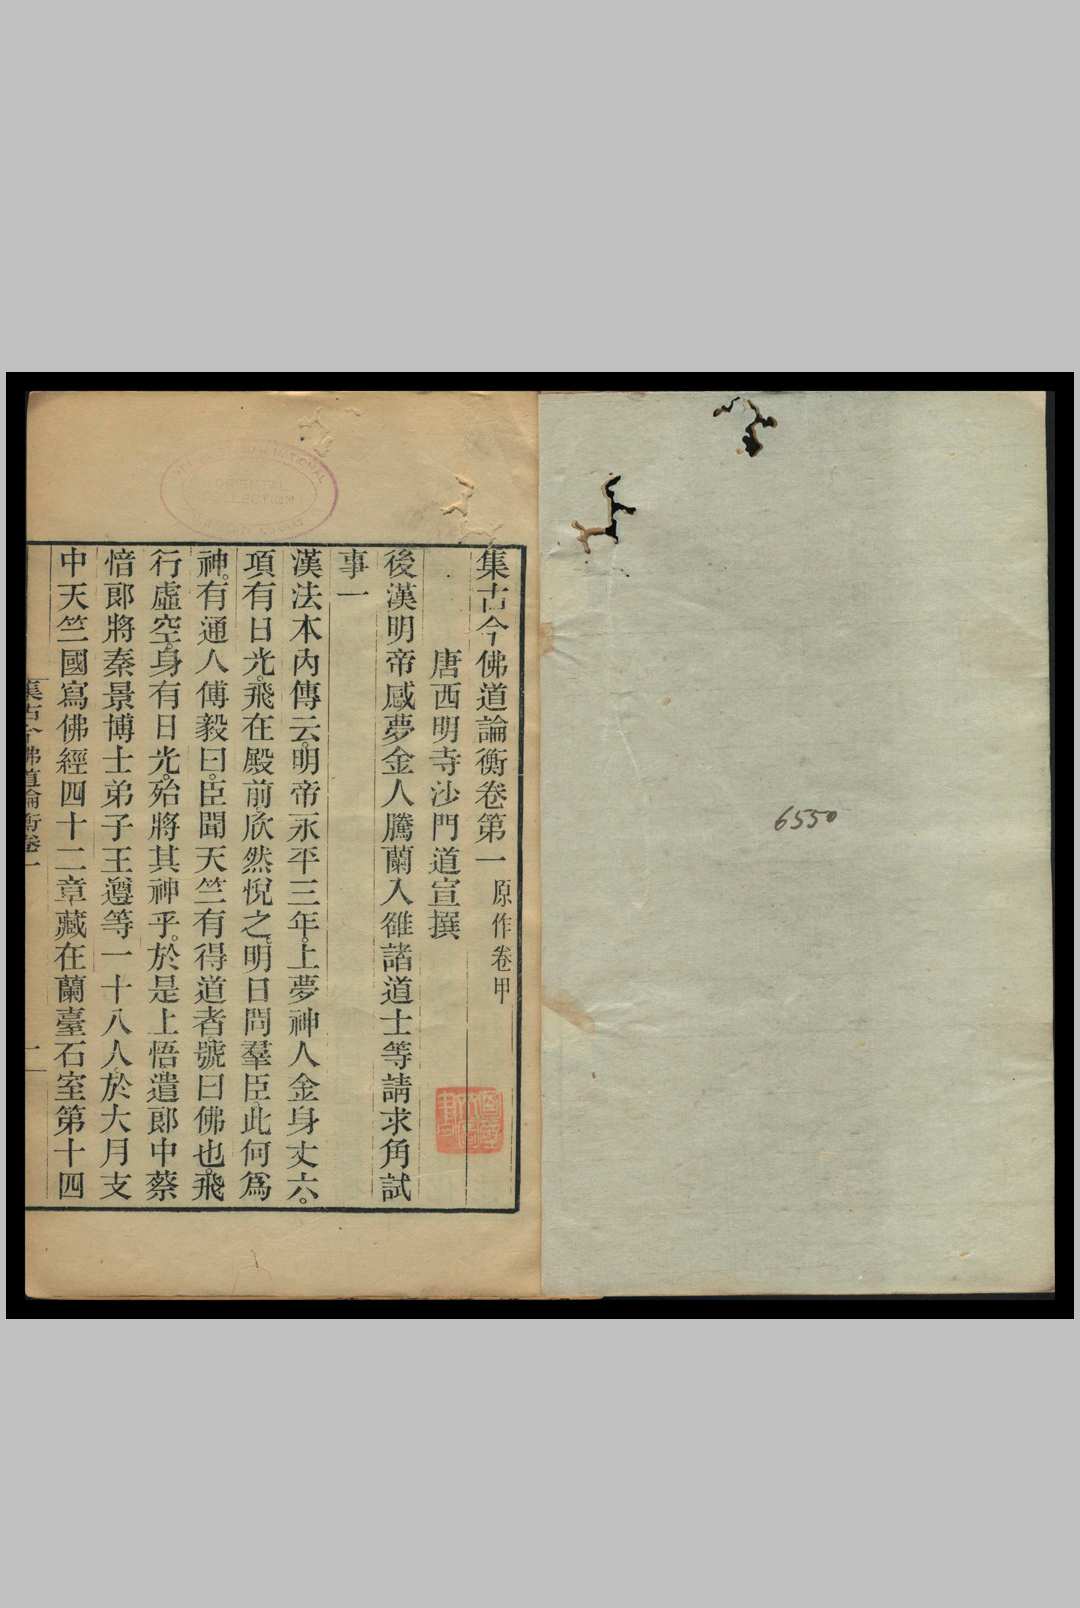 6550
集古今佛道論衡卷第一 原作卷甲
唐西明寺沙門道宣撰
後漢明帝感夢金人騰蘭入雒諸道士等請求角試
事一
漢法本內傳云。明帝永平三年。上夢神人金身丈六。
項有日光。飛在殿前。欣然悅之。明日問羣臣。此何爲
神。有通人傅毅曰。臣聞天竺有得道者號曰佛也。飛
行虛空。身有日光。殆將其神乎。於是上悟。遣郎中蔡
愔郎將秦景博士弟子王遵等一十八人。於大月支
中天竺國寫佛經四十二章藏在蘭臺石室第十四
集古今佛道論衡卷一
一
ORIENTAL
COLLECTION